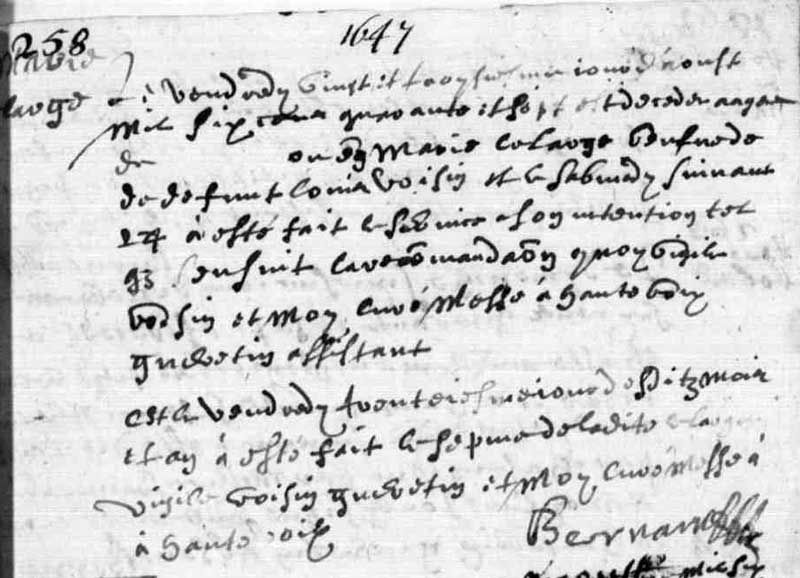 258
1647
Marie
Large
Vendredy vingt et troysiesme iour d'aoust
Mil six cens quarante et sept est decedee aagee
de ou en Marie le Large vefve de
de defunt Louis Voisin et le sabmedy suivant
24 à esté fait le service a son intention tel
q3 sensuit la recomandaon vigile
Voisin et Moy curé Messe à haute voix
guevetin assistant
est le Vendredy trentiesme iour desditz mois
et an à esté fait le sepme de ladite le Large
vigile voisin guevetin et Moy curé Messe à
à haute voix